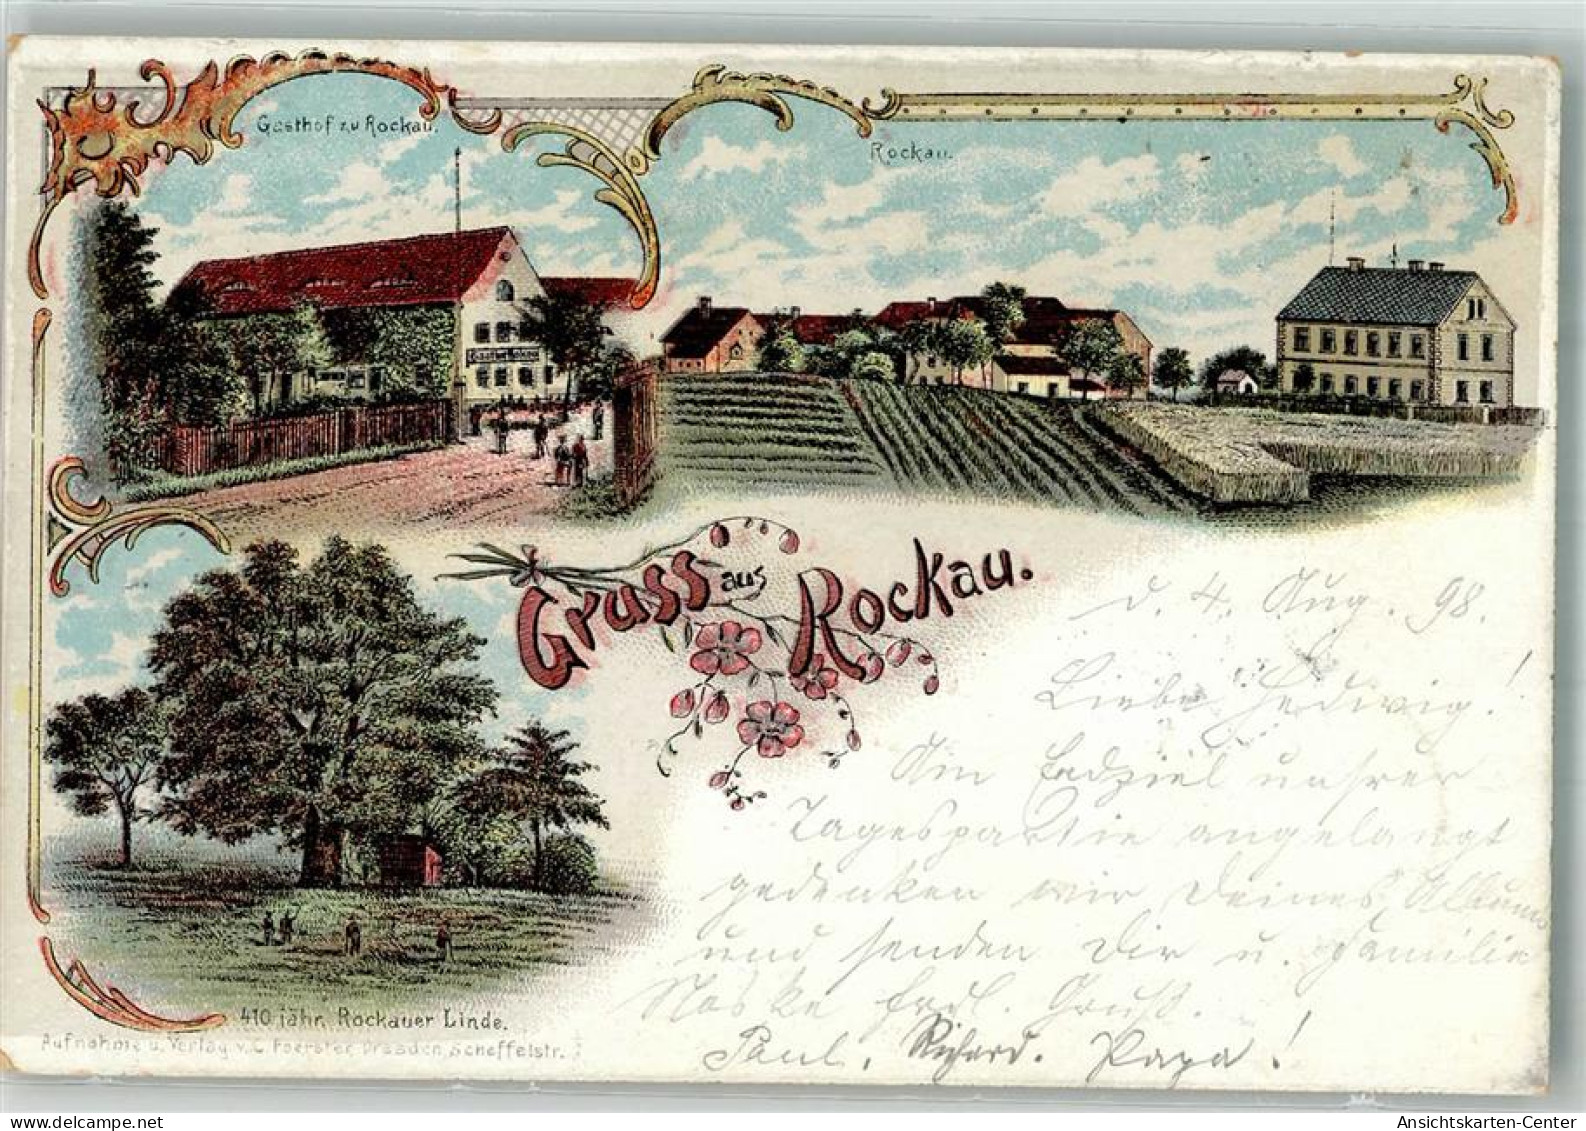 Gasthof zu Rockau.
Rockau.
Gruss aus Rockau.
d. 4. Aug. 98.
Liebe Hedwig!
Am Endziel unsrer
Tagespartie angelangt
gedenken wir Deines Albums
und senden Dir u. Familie
Noske frdl. Gruß.
Paul, Richard. Papa!
410 jähr. Rockauer Linde.
Aufnahme u. Verlag v. C. Foerster, Dresden, Scheffelstr.
Ansichtskarten-Center